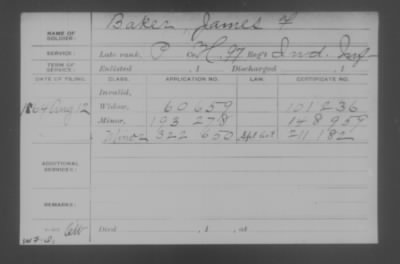 NAME OF SOLDIER: Baker James F
SERVICE: Late rank, P Co. H, 97 Reg't Ind. Inf
TERM OF SERVICE: Enlisted , 1 Discharged , 1
DATE OF FILING. CLASS. APPLICATION NO. LAW. CERTIFICATE NO.
Invalid,
1864 Aug 12 Widow, 60659 101236
Minor, 193 278 148959
Minor 322 650 Apl Act 211182
ADDITIONAL SERVICES:
REMARKS:
Died , 1 , at